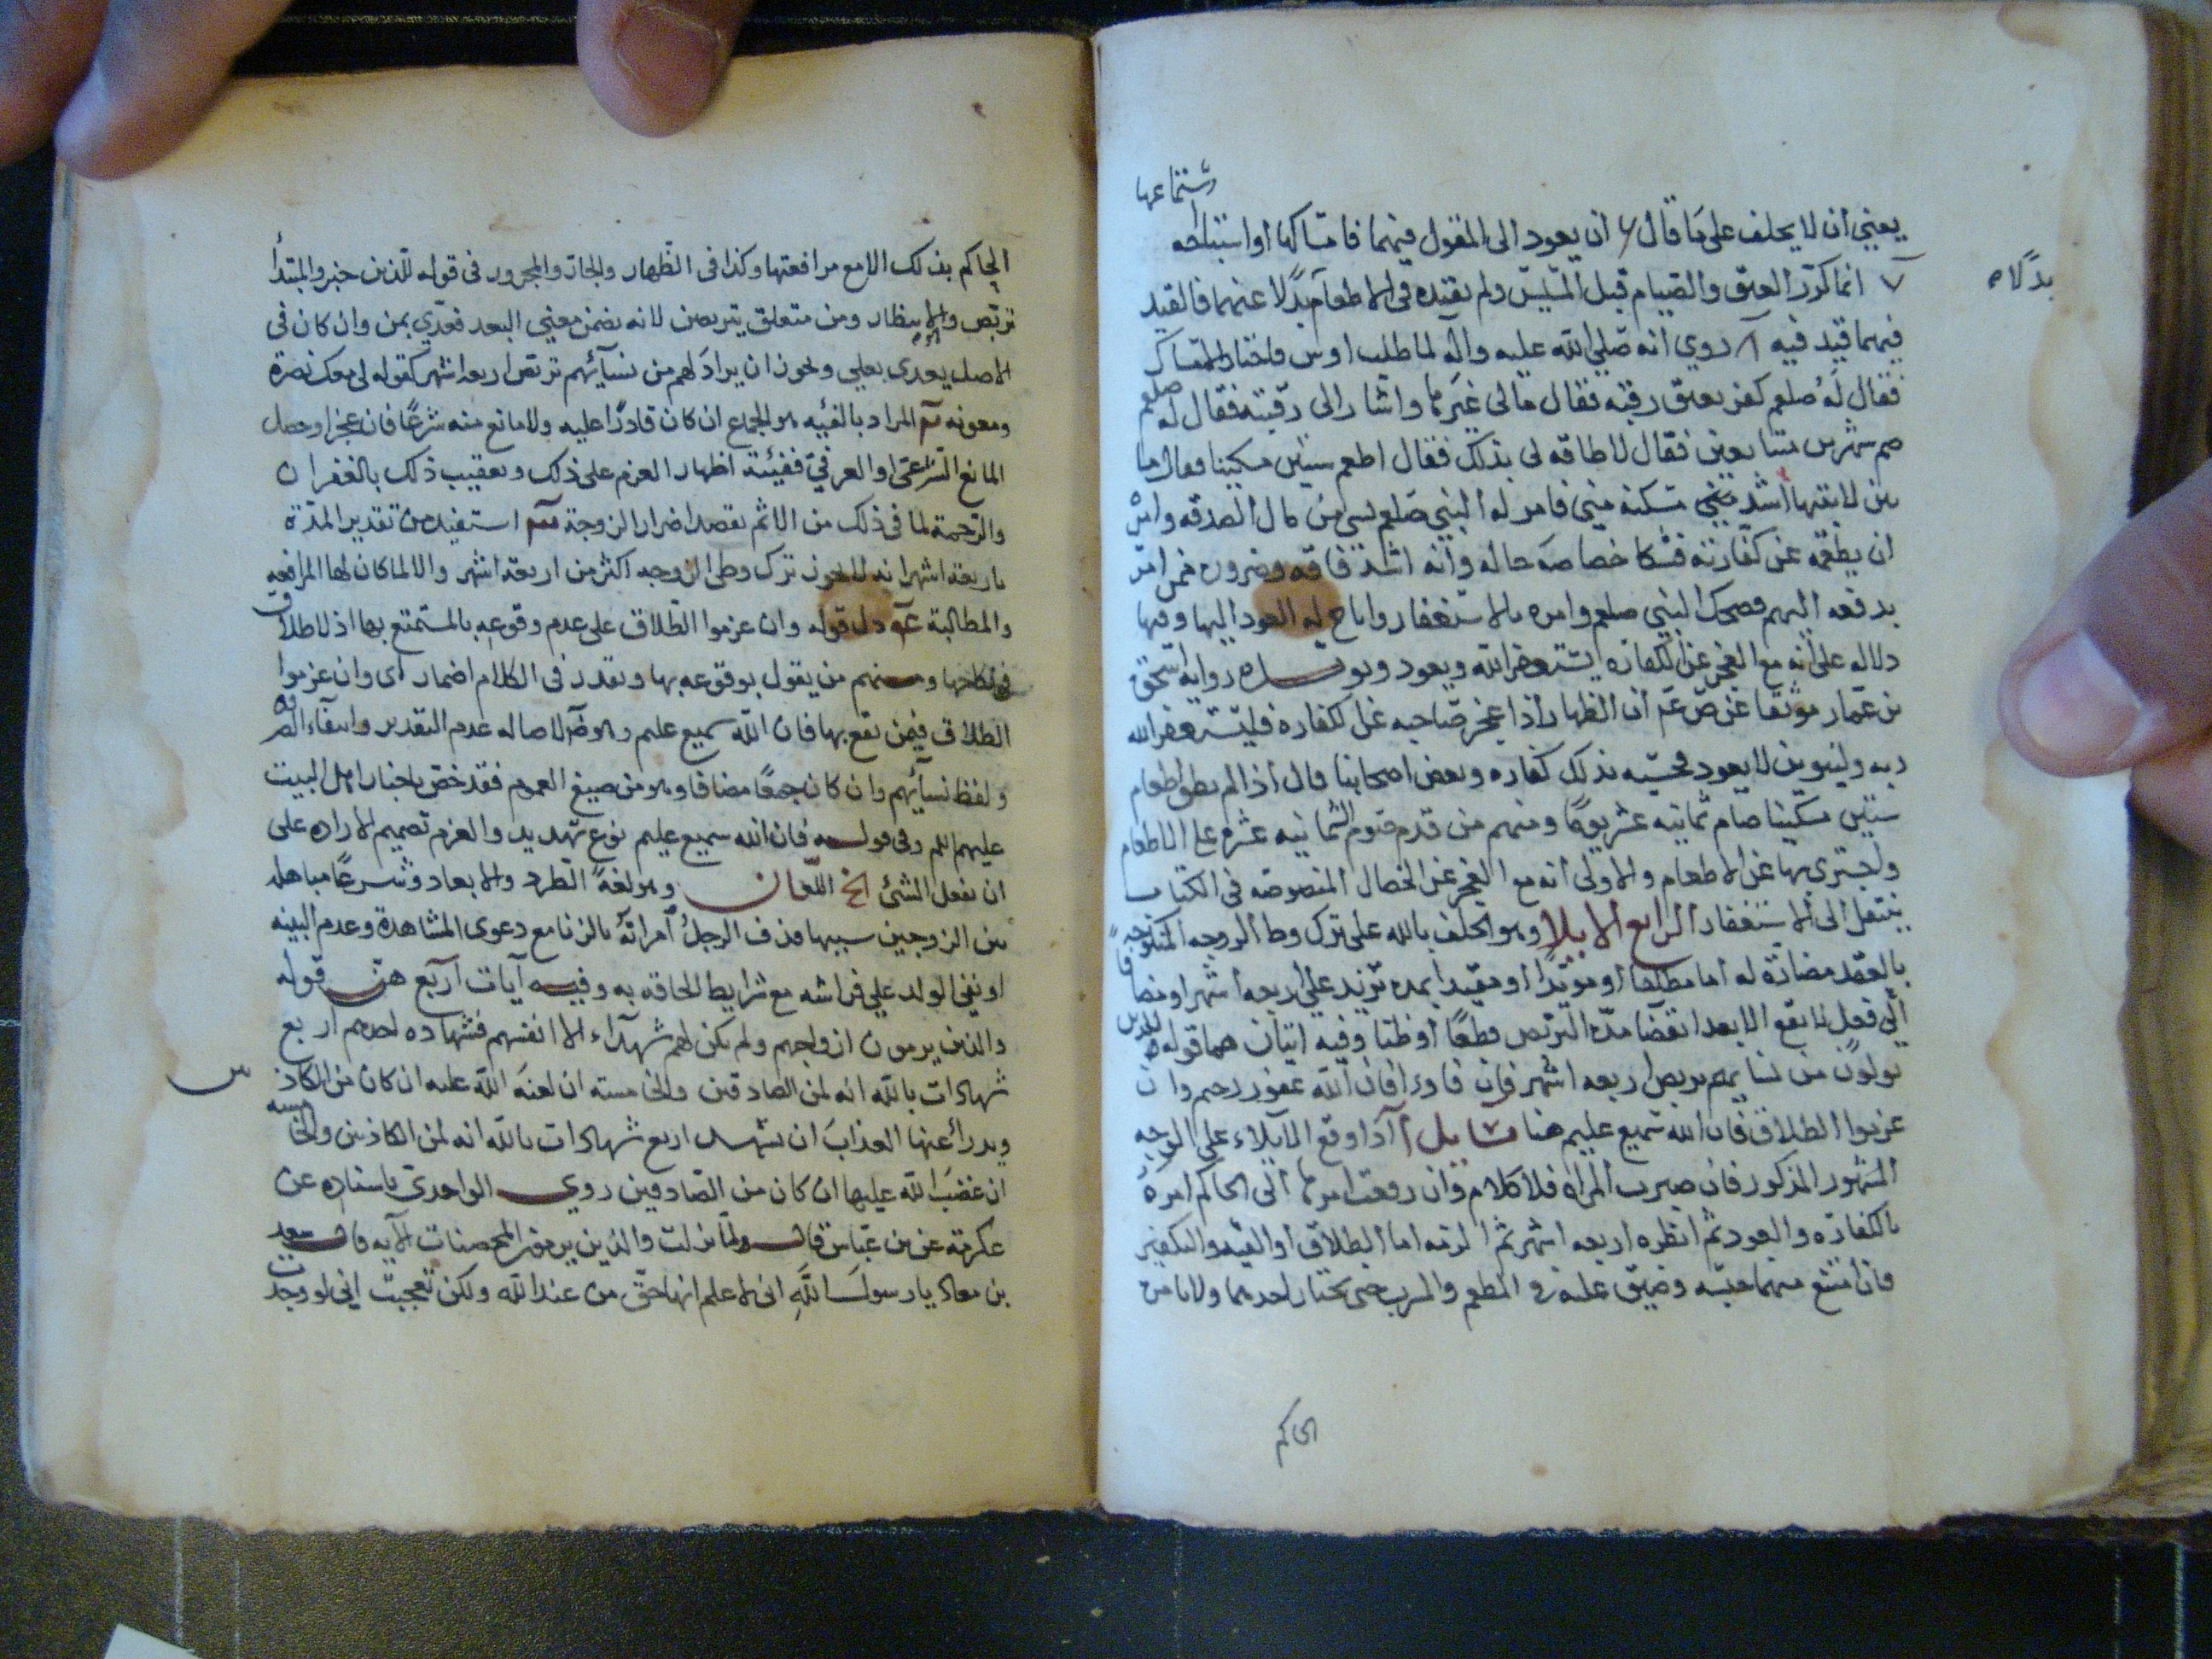 يعني أن لا يحلف على ما قال أن يعود الى المقول فيهما فامساكها او استباحه
استمتاعها
٧ انما كرّر العتق والصيام قبل المسيس ولم يقيده في الاطعام بدلا عنهما فالقيد
بدلا
فيهما قيد فيه ٨ روي انه صلى الله عليه وآله لما طلب اوس فاختار التماسك
فقال له صلعم كفر بعتق رقبة فقال مالي غيرها واشار الى رقبته فقال له صلعم
صم شهرين متتابعين فقال لا طاقة لي بذلك فقال اطعم ستين مسكينا فقال ما
بين لابتيها اشد مسكنة مني فامر له النبي صلعم بشي من مال الصدقه وامره
ان يطعمه عن كفارته فشكا خصاصة حاله وانه اشد فاقة وضرورة ممن امر
بدفعه اليهم فضحك النبي صلعم وامره بالاستغفار واباح له العود اليها وفيها
دلاله على انه مع العجز عن الكفارة يستغفر الله ويعود ويؤيده رواية اسحق
بن عمار موثقا عن ص ع ان الظهار اذا عجز صاحبه عن الكفارة فليستغفر الله
ربه ولينو ان لا يعود فحسبه بذلك كفاره وبعض اصحابنا قال اذا لم يطق اطعام
ستين مسكينا صام ثمانية عشر يوما ومنهم من قدم صوم الثمانيه عشر على الاطعام
ويجتزى بها عن الاطعام والاولى انه مع العجز عن الخصال المنصوصه في الكتاب
ينتقل الى الاستغفار الرابع الايلا وهو الحلف بالله على ترك وطا الزوجه المنكوحة
بالعقد مضارة له اما مطلقا او مؤبدا او مقيدا بمدة تزيد على اربعة اشهر او مضافا
الى فعل لا يقع الا بعد انقضا مدة التربص قطعا او ظنا وفيه ايتان هما قوله للذين
يولون من نسايهم تربص اربعه اشهر فان فاؤا فان الله غفور رحيم وان
عزموا الطلاق فان الله سميع عليم هنا مسايل آ اذا وقع الايلاء على الوجه
المشهور المذكور فان صبرت المراه فلا كلام وان رفعت امرها الى الحاكم امره
بالكفارة والعود ثم انظره اربعه اشهر ثم الزمه اما الطلاق او الفيئه والتكفير
فان امتنع منهما حبسه وضيق عليه في المطعم والمشرب حتى يختار احدهما ولا يامره
الحاكم
الحاكم بذلك الا مع مرافعتها وكذا في الظهار والجار والمجرور في قوله للذين خبر والمبتدأ
تربّص والانتظار ومن متعلق بتربص لانه يضمن معني البعد فعدّي بمن وان كان في
الاصل يعدى بعلى ويجوز ان يراد لهم من نسآئهم تربّص اربعة اشهر كقوله لى معك نصرة
ومعونه ٢م المراد بالفيئه هو الجماع ان كان قادرًا عليه ولا مانع منه شرعًا فان عجز او حصل
المانع الشرعىّ او العرفيّ ففيئته اظهار العزم على ذلك وتعقيب ذلك بالغفران
والرّحمة لما في ذلك من الاثم بقصد اضرار الزوجة ٣م استفيد من تقدير المدّة
باربعة اشهر انه لا يجوز ترك وطى الزوجه اكثر من اربعة اشهر والا لما كان لها المرافعه
والمطالبة ٤م دل قوله وان عزموا الطّلاق على عدم وقوعه بالمستمتع بها اذ لا طلاق
في نكاحها ومنهم من يقول بوقوعه بها ويقدر في الكلام اضمار اى وان عزموا
الطّلاق فيمن تقع بها فان الله سميع عليم وهو ظ لاصالة عدم التقدير وانتفاء الضرورة
ولفظ نسآئهم وان كان جمعًا مضافا وهو من صيغ العموم فقد خصّ باخبار اهل البيت
عليهم السلم وفي قوله فان الله سميع عليم نوع تهديد والعزم تصميم الاراده على
ان يفعل الشئ الخ اللعان وهو لغةً الطرد والابعاد وشرعًا مباهلة
بين الزوجين سببها قذف الرجلُ امرأتَهُ بالزنا مع دعوى المشاهدة وعدم البينه
او نفي الولد على فراشه مع شرايط الحاقه به وفيه آيات اربع هنّ قوله
والذين يرمون ازواجهم ولم يكن لهم شهدآء الا انفسهم فشهاده احدهم اربع
شهادات بالله انه لمن الصادقين والخامسته ان لعنة الله عليه ان كان من الكاذبين
ويدرأ عنها العذابَ ان تشهد اربع شهادات بالله انه لمن الكاذبين والخامسه
ان غضبَ الله عليها ان كان من الصّادقين روي الواحدى باسناده عن
عكرمة عن بن عبّاس قال ولمّا نزلت والذين يرمون المحصنات الآيه قال سعد
بن معاد يا رسولَ اللّهِ انى لاعلم انها حقّ من عند الله ولكن تعجبت انى لو وجدت